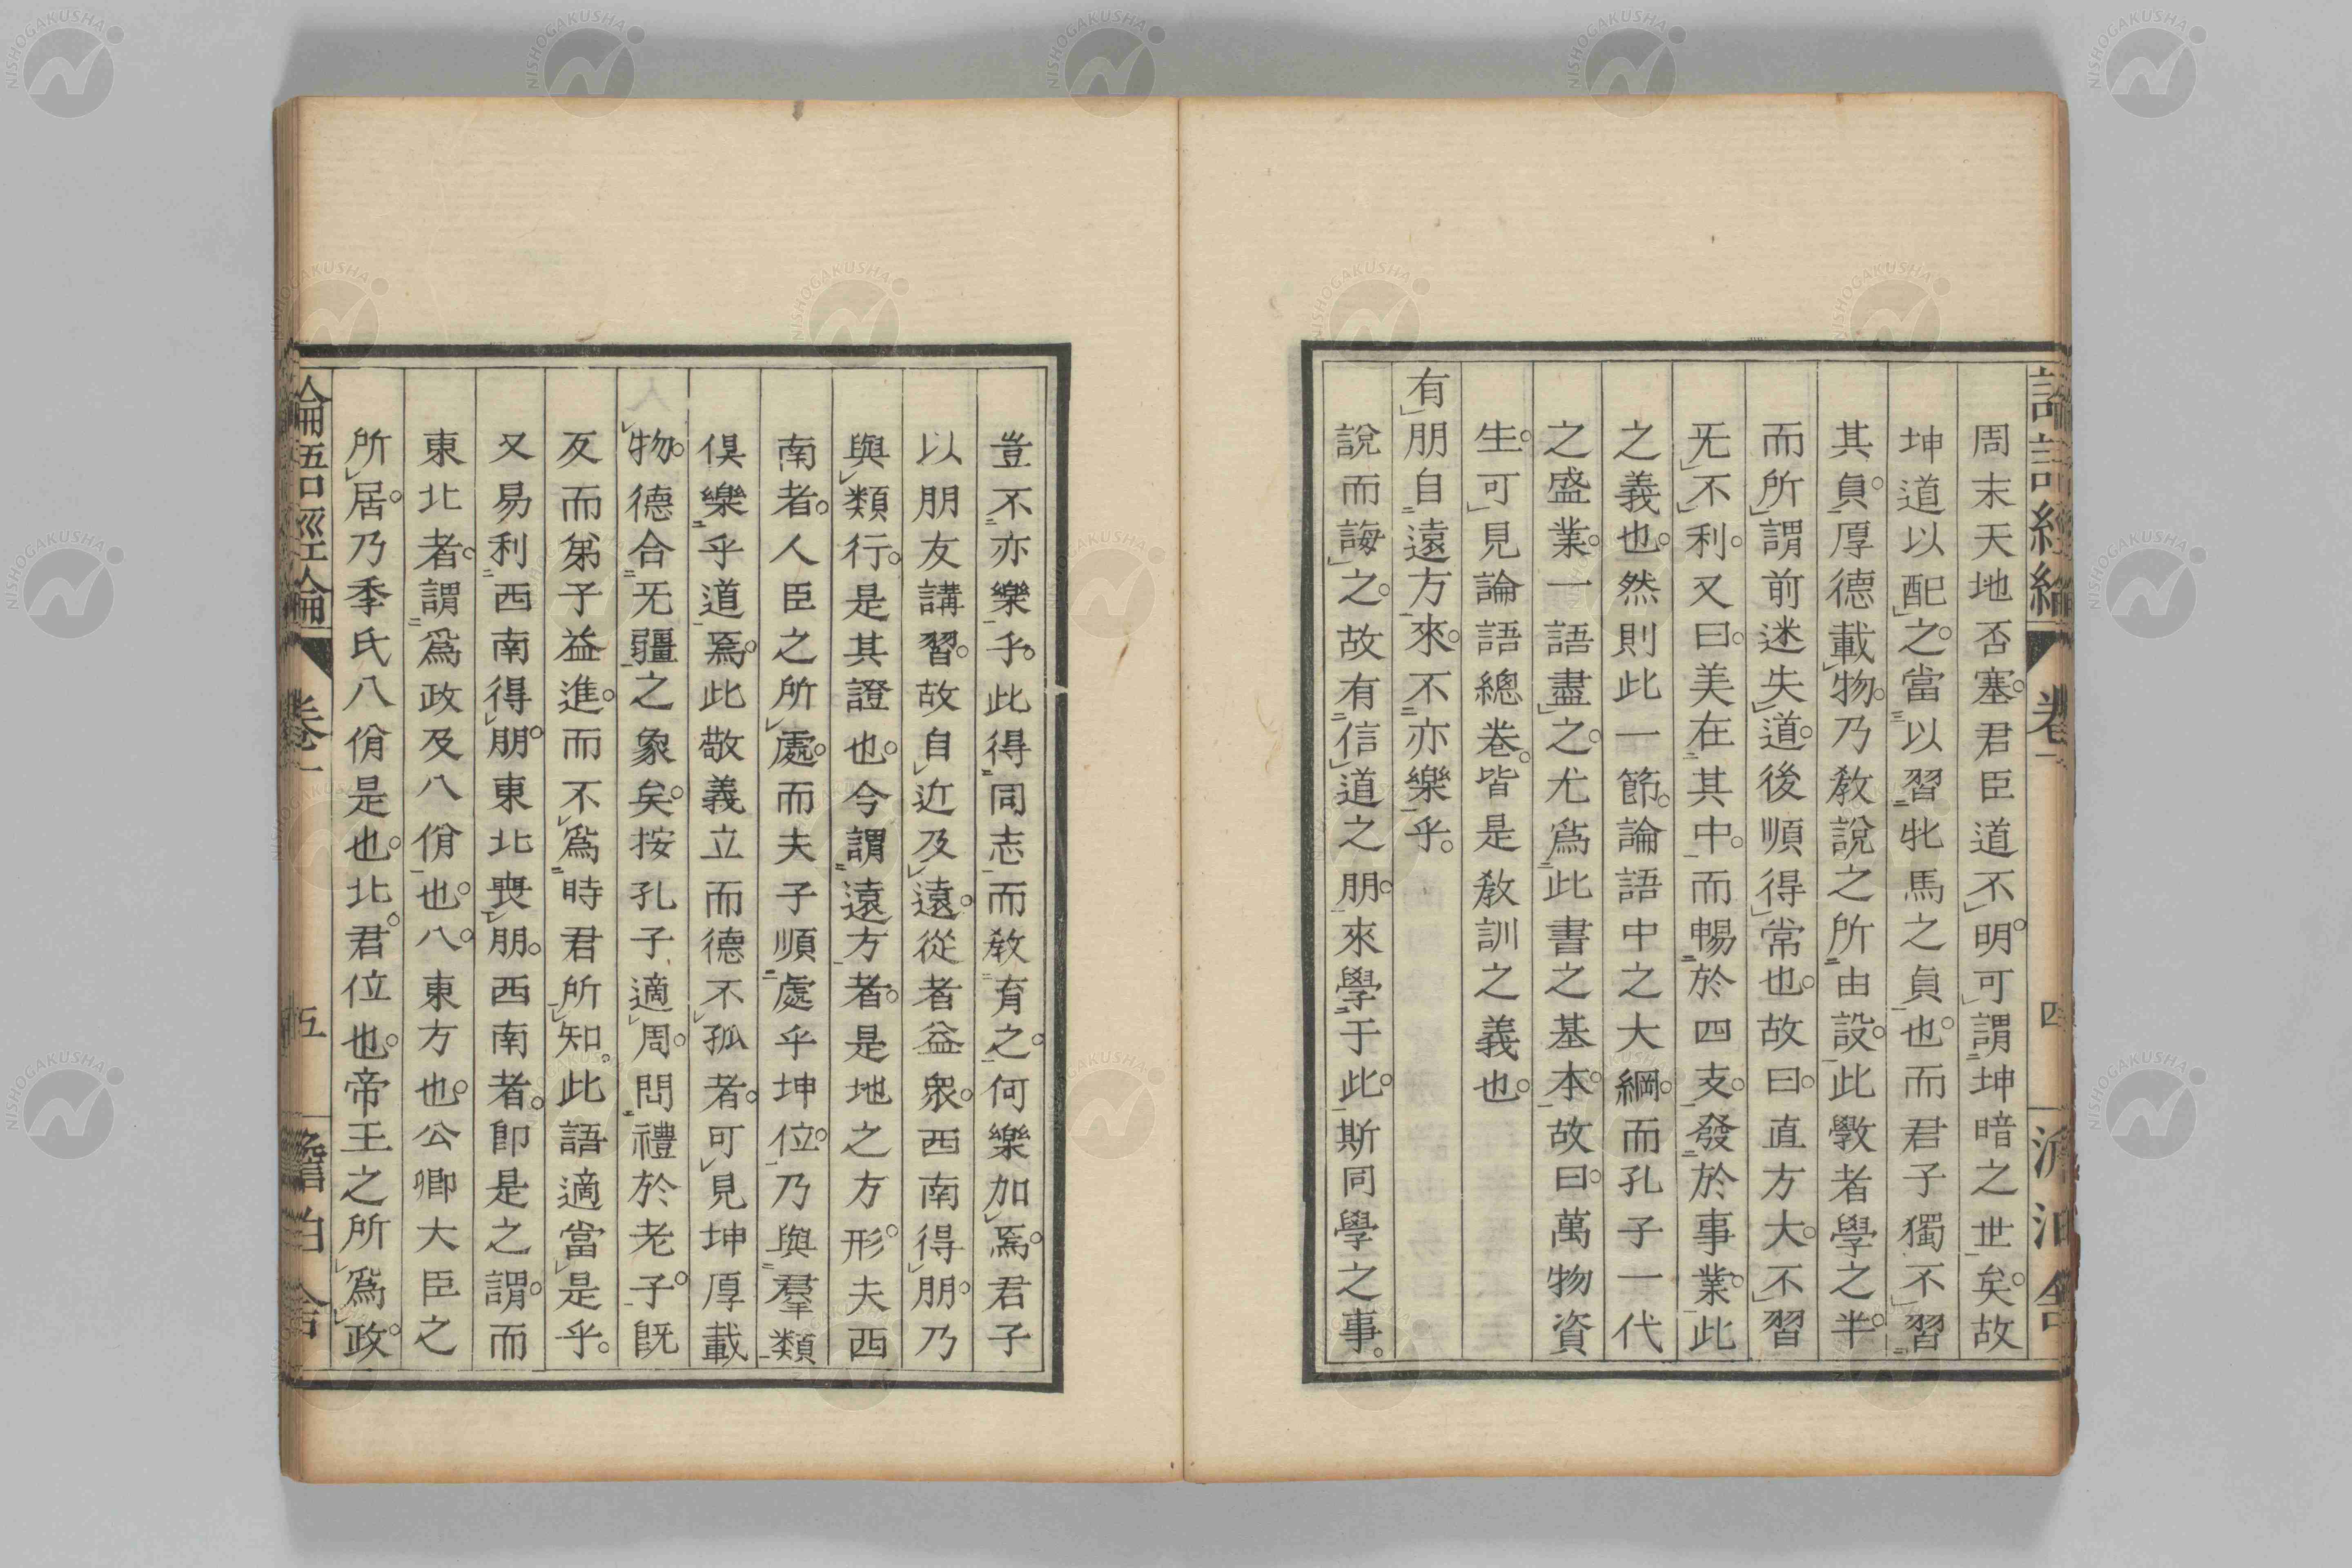 周末天地否塞。君臣道不明。可謂坤暗之世矣。故
坤道以配之。當以習牝馬之貞也。而君子獨不習
其貞。厚德載物。乃教說之所由設。此斆者學之半。
而所謂前迷失道。後順得常也。故曰。直方大。不習
无不利。又曰。美在其中。而暢於四支。發於事業。此
之義也。然則此一節。論語中之大綱。而孔子一代
之盛業。一語盡之。尤爲此書之基本。故曰。萬物資
生。可見論語總卷。皆是教訓之義也。
有朋自遠方來。不亦樂乎。
說而誨之。故有信道之朋。來學于此。斯同學之事。
論語經綸 卷一 四
豈不亦樂乎。此得同志而敎育之。何樂加焉。君子
以朋友講習。故自近及遠。從者益衆。西南得朋。乃
與類行。是其證也。今謂遠方者。是地之方形。夫西
南者。人臣之所處。而夫子順處乎坤位。乃與羣類
俱樂乎道焉。此敬義立而德不孤者。可見坤厚載
物。德合无疆之象矣。按孔子適周。問禮於老子。既
反而弟子益進。而不爲時君所知。此語適當是乎。
又易利西南得朋。東北喪朋。西南者。卽是之謂。而
東北者。謂爲政及八佾也。八。東方也。公卿大臣之
所居。乃季氏八佾是也。北。君位也。帝王之所爲政。
論語經綸 卷一 五